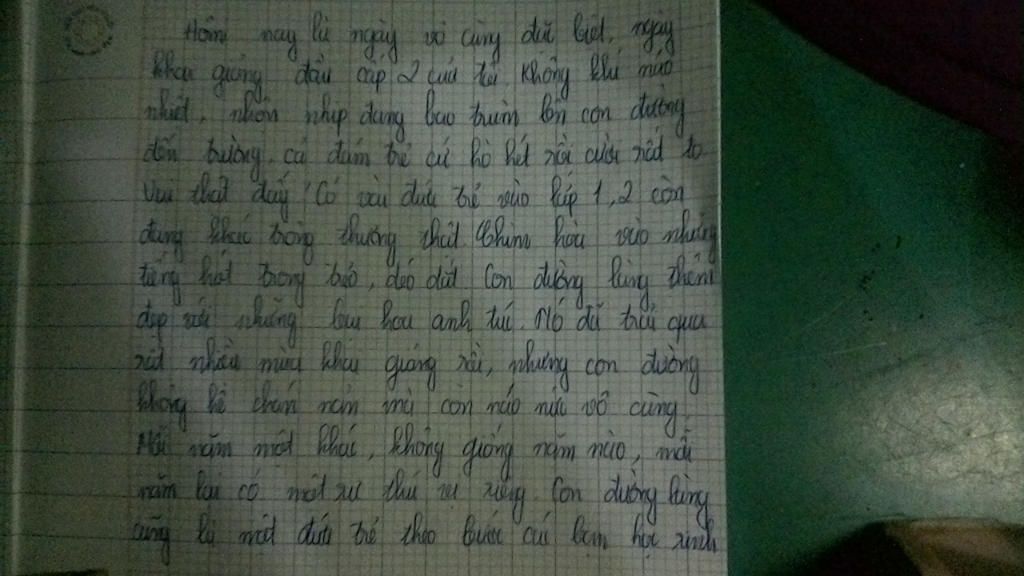 Hôm nay là ngày vô cùng đặc biệt, ngày
khai giảng đầu cấp 2 của tôi. Không khí náo
nhiệt, nhộn nhịp đang bao trùm lên con đường
đến trường. cả đám trẻ cứ hò hét rồi cười rất to.
Vui thật đấy! Có vài đứa trẻ vào lớp 1, 2 còn
đang khóc trông thương thật. Chim hòa vào những
tiếng hót trong trẻo, déo dắt. Con đường làng thêm
đẹp với những bụi hoa anh túc. Nó đã trải qua
rất nhiều mùa khai giảng rồi, nhưng con đường
không hề chán nản mà còn náo nức vô cùng.
Mỗi năm một khác, không giống năm nào, mỗi
năm lại có một sự thú vị riêng. Con đường làng
cũng là một đứa trẻ theo bước các bạn học sinh